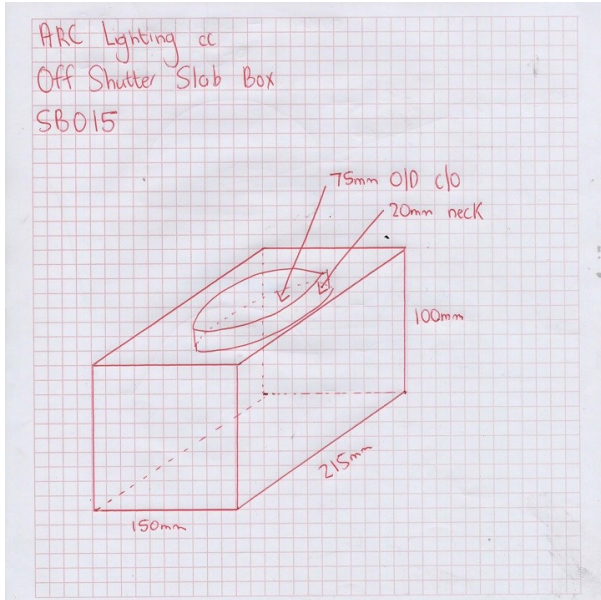 ARC Lighting cc
Off Shutter Slab Box
SB015
75mm O/D c/o
20mm neck
100mm
215mm
150mm